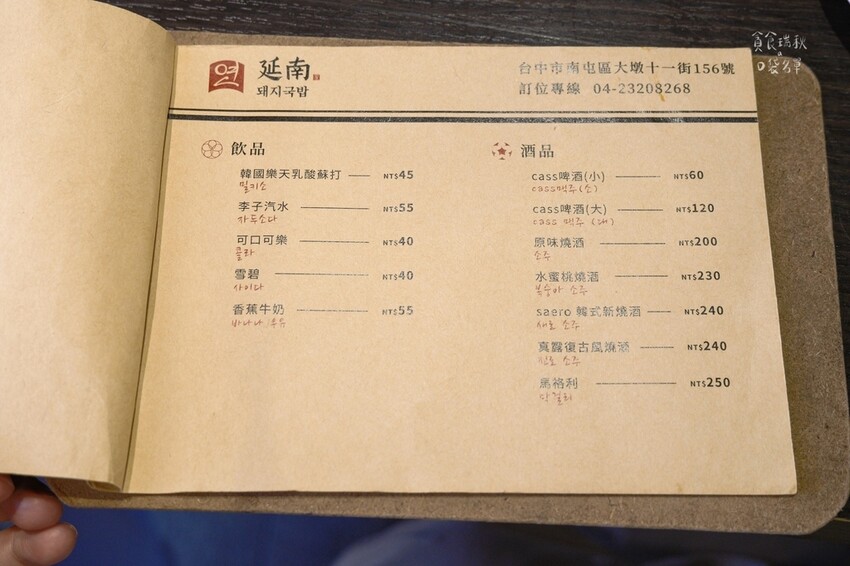 貪食瑞秋
口袋名單
연
延南
돼지국밥
台中市南屯區大墩十一街156號
訂位專線 04-23208268
飲品
韓國樂天乳酸蘇打 NT$45
밀키소
李子汽水 NT$55
자두소다
可口可樂 NT$40
콜라
雪碧 NT$40
사이다
香蕉牛奶 NT$55
바나나우유
酒品
cass啤酒(小) NT$60
cass맥주(소)
cass啤酒(大) NT$120
cass 맥주 (대)
原味燒酒 NT$200
소주
水蜜桃燒酒 NT$230
복숭아 소주
saero 韓式新燒酒 NT$240
새로 소주
真露復古風燒酒 NT$240
진로 소주
馬格利 NT$250
막걸리